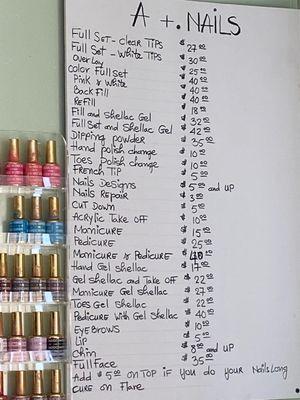 A +. NAILS
Full Set - Clear Tips $ 27.00
Full Set - White Tips $ 30.00
Overlay $ 25.00
Color Full Set $ 40.00
Pink & White $ 40.00
Back Fill $ 18.00
Refill
Fill and Shellac Gel $ 32.00
Full Set and Shellac Gel $ 42.00
Dipping Powder $ 35.00
Hand Polish change $ 10.00
Toes Polish change $ 10.00
French Tip $ 5.00
Nails Designs $ 5.00 and up
Nails Repair $ 3.00
Cut Down $ 5.00
Acrylic Take off $ 10.00
Manicure $ 15.00
Pedicure $ 25.00
Manicure & Pedicure $ 40.00
Hand Gel Shellac $ 17.00
Gel Shellac and Take off $ 22.00
Manicure Gel Shellac $ 27.00
Toes Gel Shellac $ 22.00
Pedicure With Gel Shellac $ 40.00
EyeBrows $ 10.00
Lip $ 5.00
Chin $ 8.00 and up
Full Face $ 35.00
Add $ 5.00 on Top IF you do your Nails Long
Cure on Flare